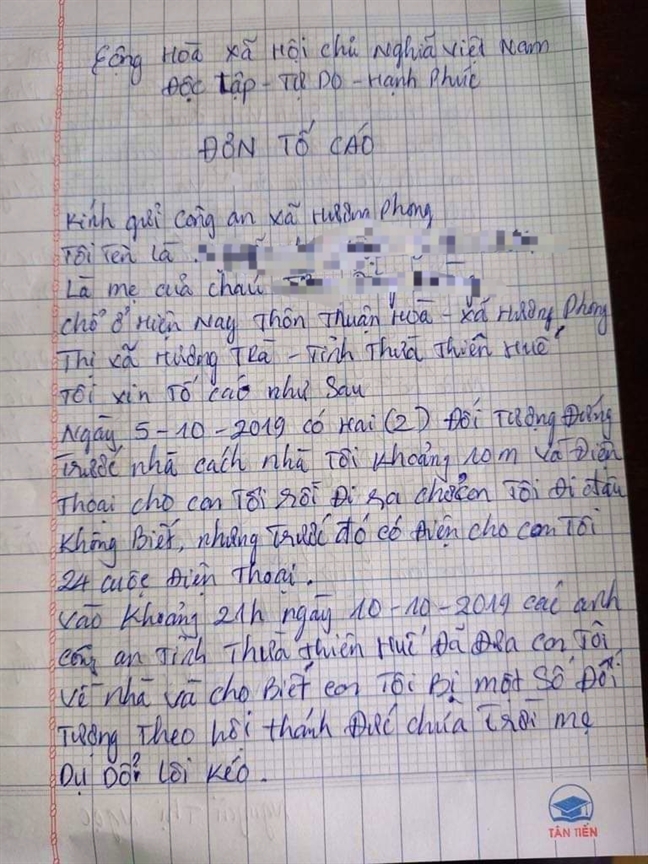 Cộng Hoà xã Hội chủ Nghĩa Việt Nam
Độc Lập - Tự Do - Hạnh Phúc
ĐƠN TỐ CÁO
Kính gửi Công an xã Hương Phong
Tôi Tên là
Là mẹ của cháu
chổ ở Hiện Nay Thôn Thuận Hoà - xã Hương Phong
Thị xã Hương Trà - Tỉnh Thừa Thiên Huế
Tôi xin Tố cáo như sau
Ngày 5-10-2019 có Hai (2) Đối Tượng Đứng
Trước nhà cách nhà Tôi Khoảng 10m và Điện
Thoại cho con Tôi rồi Đi ra chở con Tôi Đi đâu
Không Biết, nhưng Trước đó có Điện cho con Tôi
24 cuộc Điện Thoại.
vào Khoảng 21h ngày 10-10-2019 các anh
công an Tỉnh Thừa Thiên Huế Đã Đưa con Tôi
về nhà và cho Biết con Tôi Bị một Số Đối
Tượng Theo hội thánh Đức chúa Trời mẹ
Dụ Dổ Lôi Kéo.
TÂN TIẾN